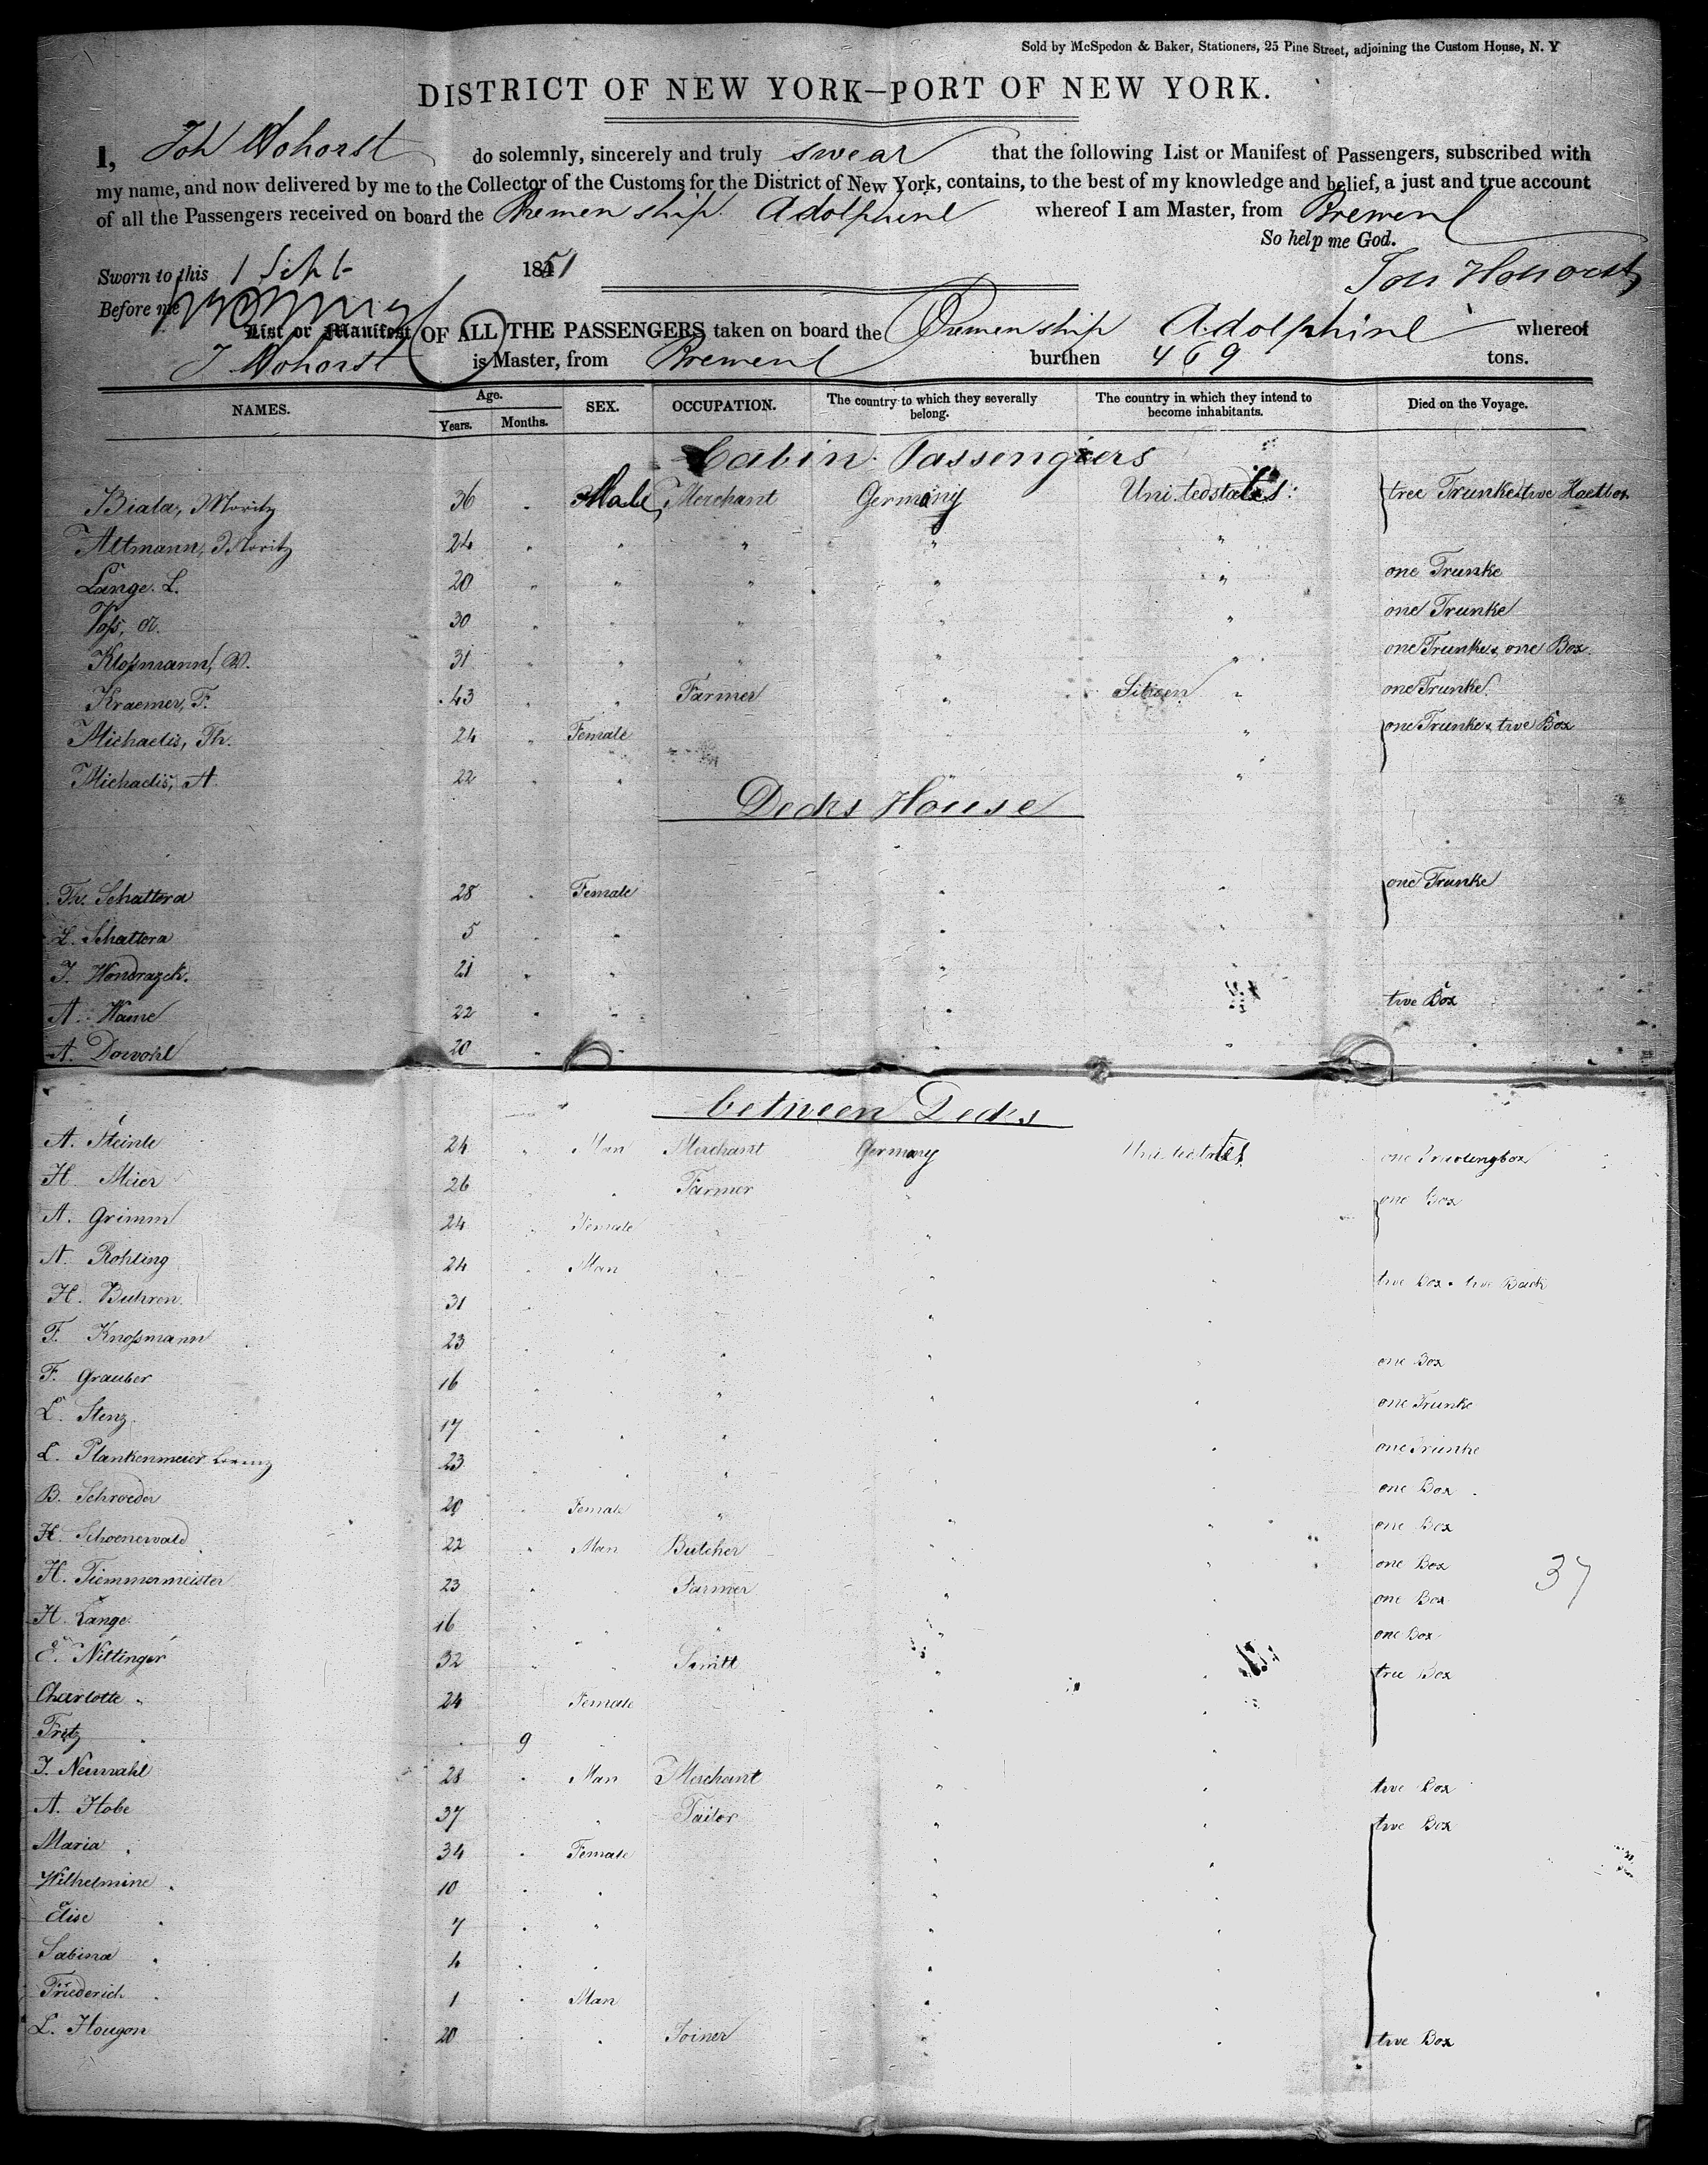 Sold by McSpedon & Baker, Stationers, 25 Pine Street, adjoining the Custom House, N. Y
DISTRICT OF NEW YORK—PORT OF NEW YORK.
I, Joh Hohorst do solemnly, sincerely and truly swear that the following List or Manifest of Passengers, subscribed with
my name, and now delivered by me to the Collector of the Customs for the District of New York, contains, to the best of my knowledge and belief, a just and true account
of all the Passengers received on board the Bremen ship Adolphine whereof I am Master, from Bremen
So help me God.
Sworn to this 1 Sept 1851
Joh Hohorst
Before me
List or Manifest OF ALL THE PASSENGERS taken on board the Bremen ship Adolphine whereof
J Hohorst is Master, from Bremen burthen 469 tons.
NAMES. Age. Years. Months. SEX. OCCUPATION. The country to which they severally belong. The country in which they intend to become inhabitants. Died on the Voyage.
Cabin Passengiers
Biala, Moritz 36 Male, Merchant Germany United states: tree Trunke & twe
Altmann, Moritz 24 " " " "
Lange. L. 20 " " " " one Trunke
Voß, A. 30 " " " " one Trunke
Kloßmann, W. 31 " " " " one Trunke & one Box.
Kraemer, F. 43 " Farmer " Sitizen " one Trunke.
Michaelis, Th. 24 Female " " one Trunke & twe Box
Michaelis, A. 22 " " "
Decks House
Th. Schattera 28 Female " " one Trunke
L. Schattera 5 " " "
J. Wondrazek. 21 " "
A. Hame 22 " " twe Box
A. Dowohl 20 " " "
between Decks
A. Steinle 24 Man Merchant Germany United states one
H. Meier 26 " Farmer " one Box
A. Grimm 24 Female " "
A. Rohling 24 Man " " " twe Box & twe
H. Buhren. 31 " " "
F. Knoßmann 23 " " " " one Box
F. Grauber 16 " " " one Trunke
L. Stenz. 17 " " " one Trunke
L. Plankenmeier Lorenz 23 " " " " one Box
B. Schroeder 20 Female " " " one Box
H. Schoenewald 22 Man Butcher " " one Box
H. Tiemmermeister 23 " Farmer " " one Box 37
H. Lange. 16 " " " one Box
E. Nittinger 32 " Smitt " " tree Box
Charlotte " 24 Female " "
Fritz " 9 " "
J. Neuwahl 28 Man Merchant " " twe Box
A. Hobe 37 " Tailor " " twe Box
Maria " 34 Female " "
Wilhelmine " 10 " " "
Elise " 7 " " "
Sabina " 4 " " "
Friederich " 1 Man " "
L. Hougon 20 " Joiner " " twe Box